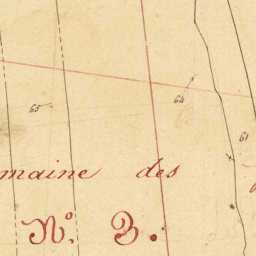 65
64
61
maine des
N.º 3.